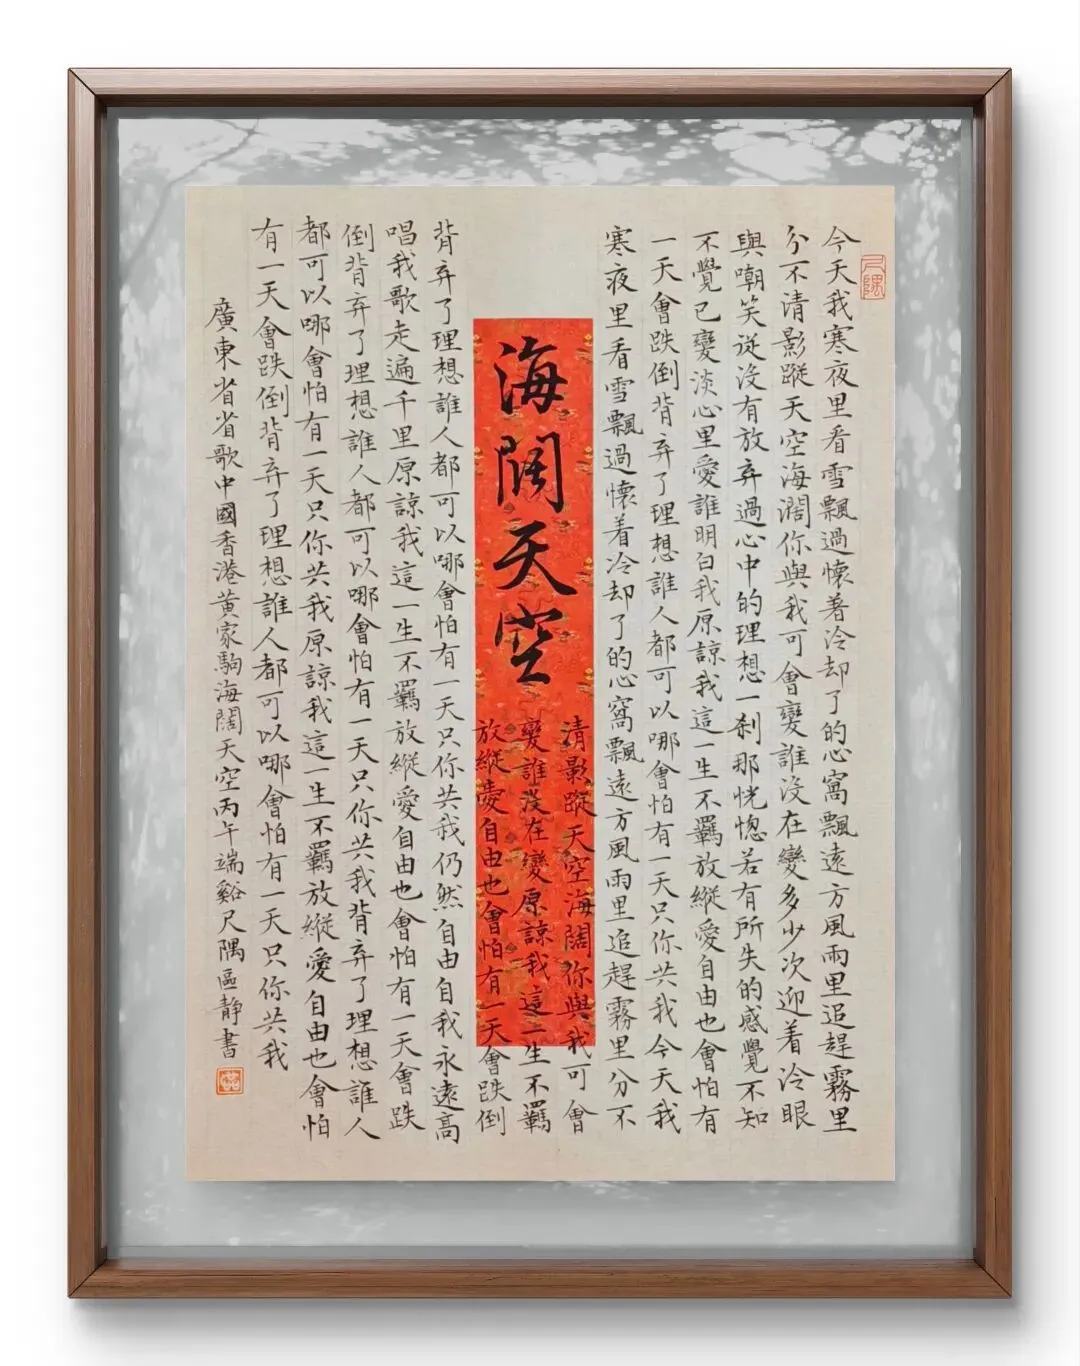 尺隅
今天我寒夜里看雪飄過懷著冷却了的心窩飄遠方風雨里追趕霧里
分不清影蹤天空海濶你與我可會變誰没在變多少次迎着冷眼
與嘲笑從没有放弃過心中的理想一刹那恍惚若有所失的感覺不知
不覺已變淡心里愛誰明白我原諒我這一生不羈放縱愛自由也會怕有
一天會跌倒背弃了理想誰人都可以哪會怕有一天只你共我今天我
寒夜里看雪飄過懷着冷却了的心窩飄遠方風雨里追趕霧里分不
海闊天空
清影蹤天空海闊你與我可會
變誰没在變原諒我這一生不羈
放縱愛自由也會怕有一天會跌倒
背弃了理想誰人都可以哪會怕有一天只你共我仍然自由自我永遠高
唱我歌走遍千里原諒我這一生不羈放縱愛自由也會怕有一天會跌
倒背弃了理想誰人都可以哪會怕有一天只你共我背弃了理想誰人
都可以哪會怕有一天只你共我原諒我這一生不羈放縱愛自由也會怕
有一天會跌倒背弃了理想誰人都可以哪會怕有一天只你共我
廣東省省歌中國香港黄家駒海闊天空丙午端谿尺隅區静書